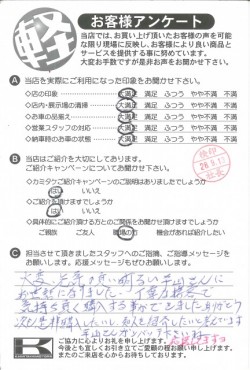 軽
お客様アンケート
当店では、お買い上げ頂いたお客様の声を可能
な限り現場に反映し、お客様により良い商品と
サービスを提供する事に努めています。
大変お手数ですが是非お声をお聞かせ下さい。
A 当店を実際にご利用になった印象をお聞かせ下さい。
◇店の印象 大満足 満足 ふつう やや不満 不満
◇店内・展示場の清掃 大満足 満足 ふつう やや不満 不満
◇お車の品揃え 大満足 満足 ふつう やや不満 不満
◇営業スタッフの対応 大満足 満足 ふつう やや不満 不満
◇納車時のお車の状態 大満足 満足 ふつう やや不満 不満
B 当店はご紹介を大切にしております。
ご紹介キャンペーンについてお聞かせ下さい。
◇カミタケご紹介キャンペーンのご説明はありましたでしょうか
はい いいえ
◇ご紹介を頂けますでしょうか
はい いいえ
◇具体的にご紹介頂ける方とのご関係をお聞かせ頂けますでしょうか
ご親族 ご友人 職場の方 機会があれば紹介したい
C 担当させて頂きましたスタッフへのご指摘、ご指導メッセージを
お願いします。応援メッセージもぜひお願いします。
大変元気の良い明るい平山さんに
お世話になりました。丁寧な接客で
気持ち良く購入する事ができました。ありがとう
次も是非購入したいし、友人も紹介したいと思います
平山さんガンバッて下さいネ
応援してます
K
ご協力に心よりお礼を申し上げます。
今後とも宜しくお引き立てご愛顧の程お願い申し上げます。
またのご来店を心からお待ちしております。